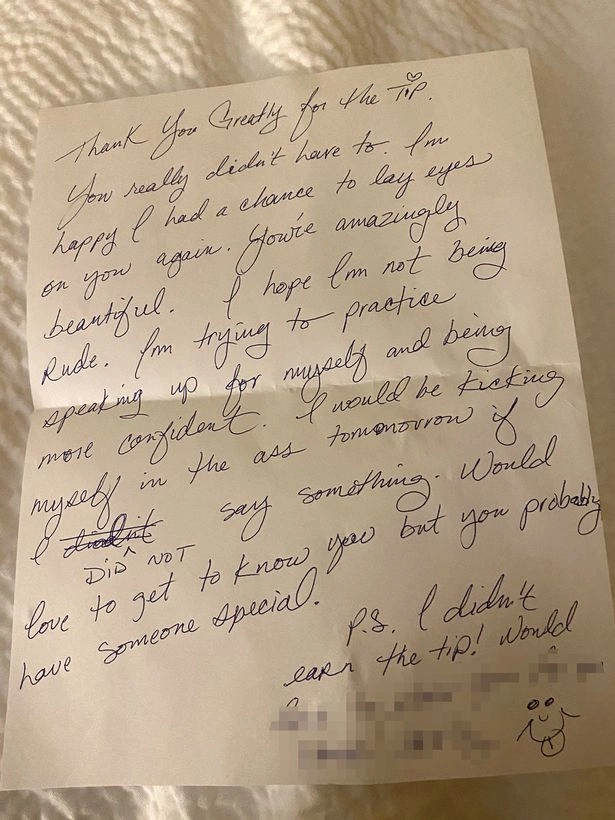 Thank You Greatly for the TIP.
You really didn't have to. I'm
happy I had a chance to lay eyes
on you again. You're amazingly
beautiful. I hope I'm not being
Rude. I'm trying to practice
speaking up for myself and being
more confident. I would be kicking
myself in the ass tomorrow if
I didn't say something. Would
DID ^ NOT
love to get to know you but you probably
have someone special.
P.S. I didn't
earn the tip! Would